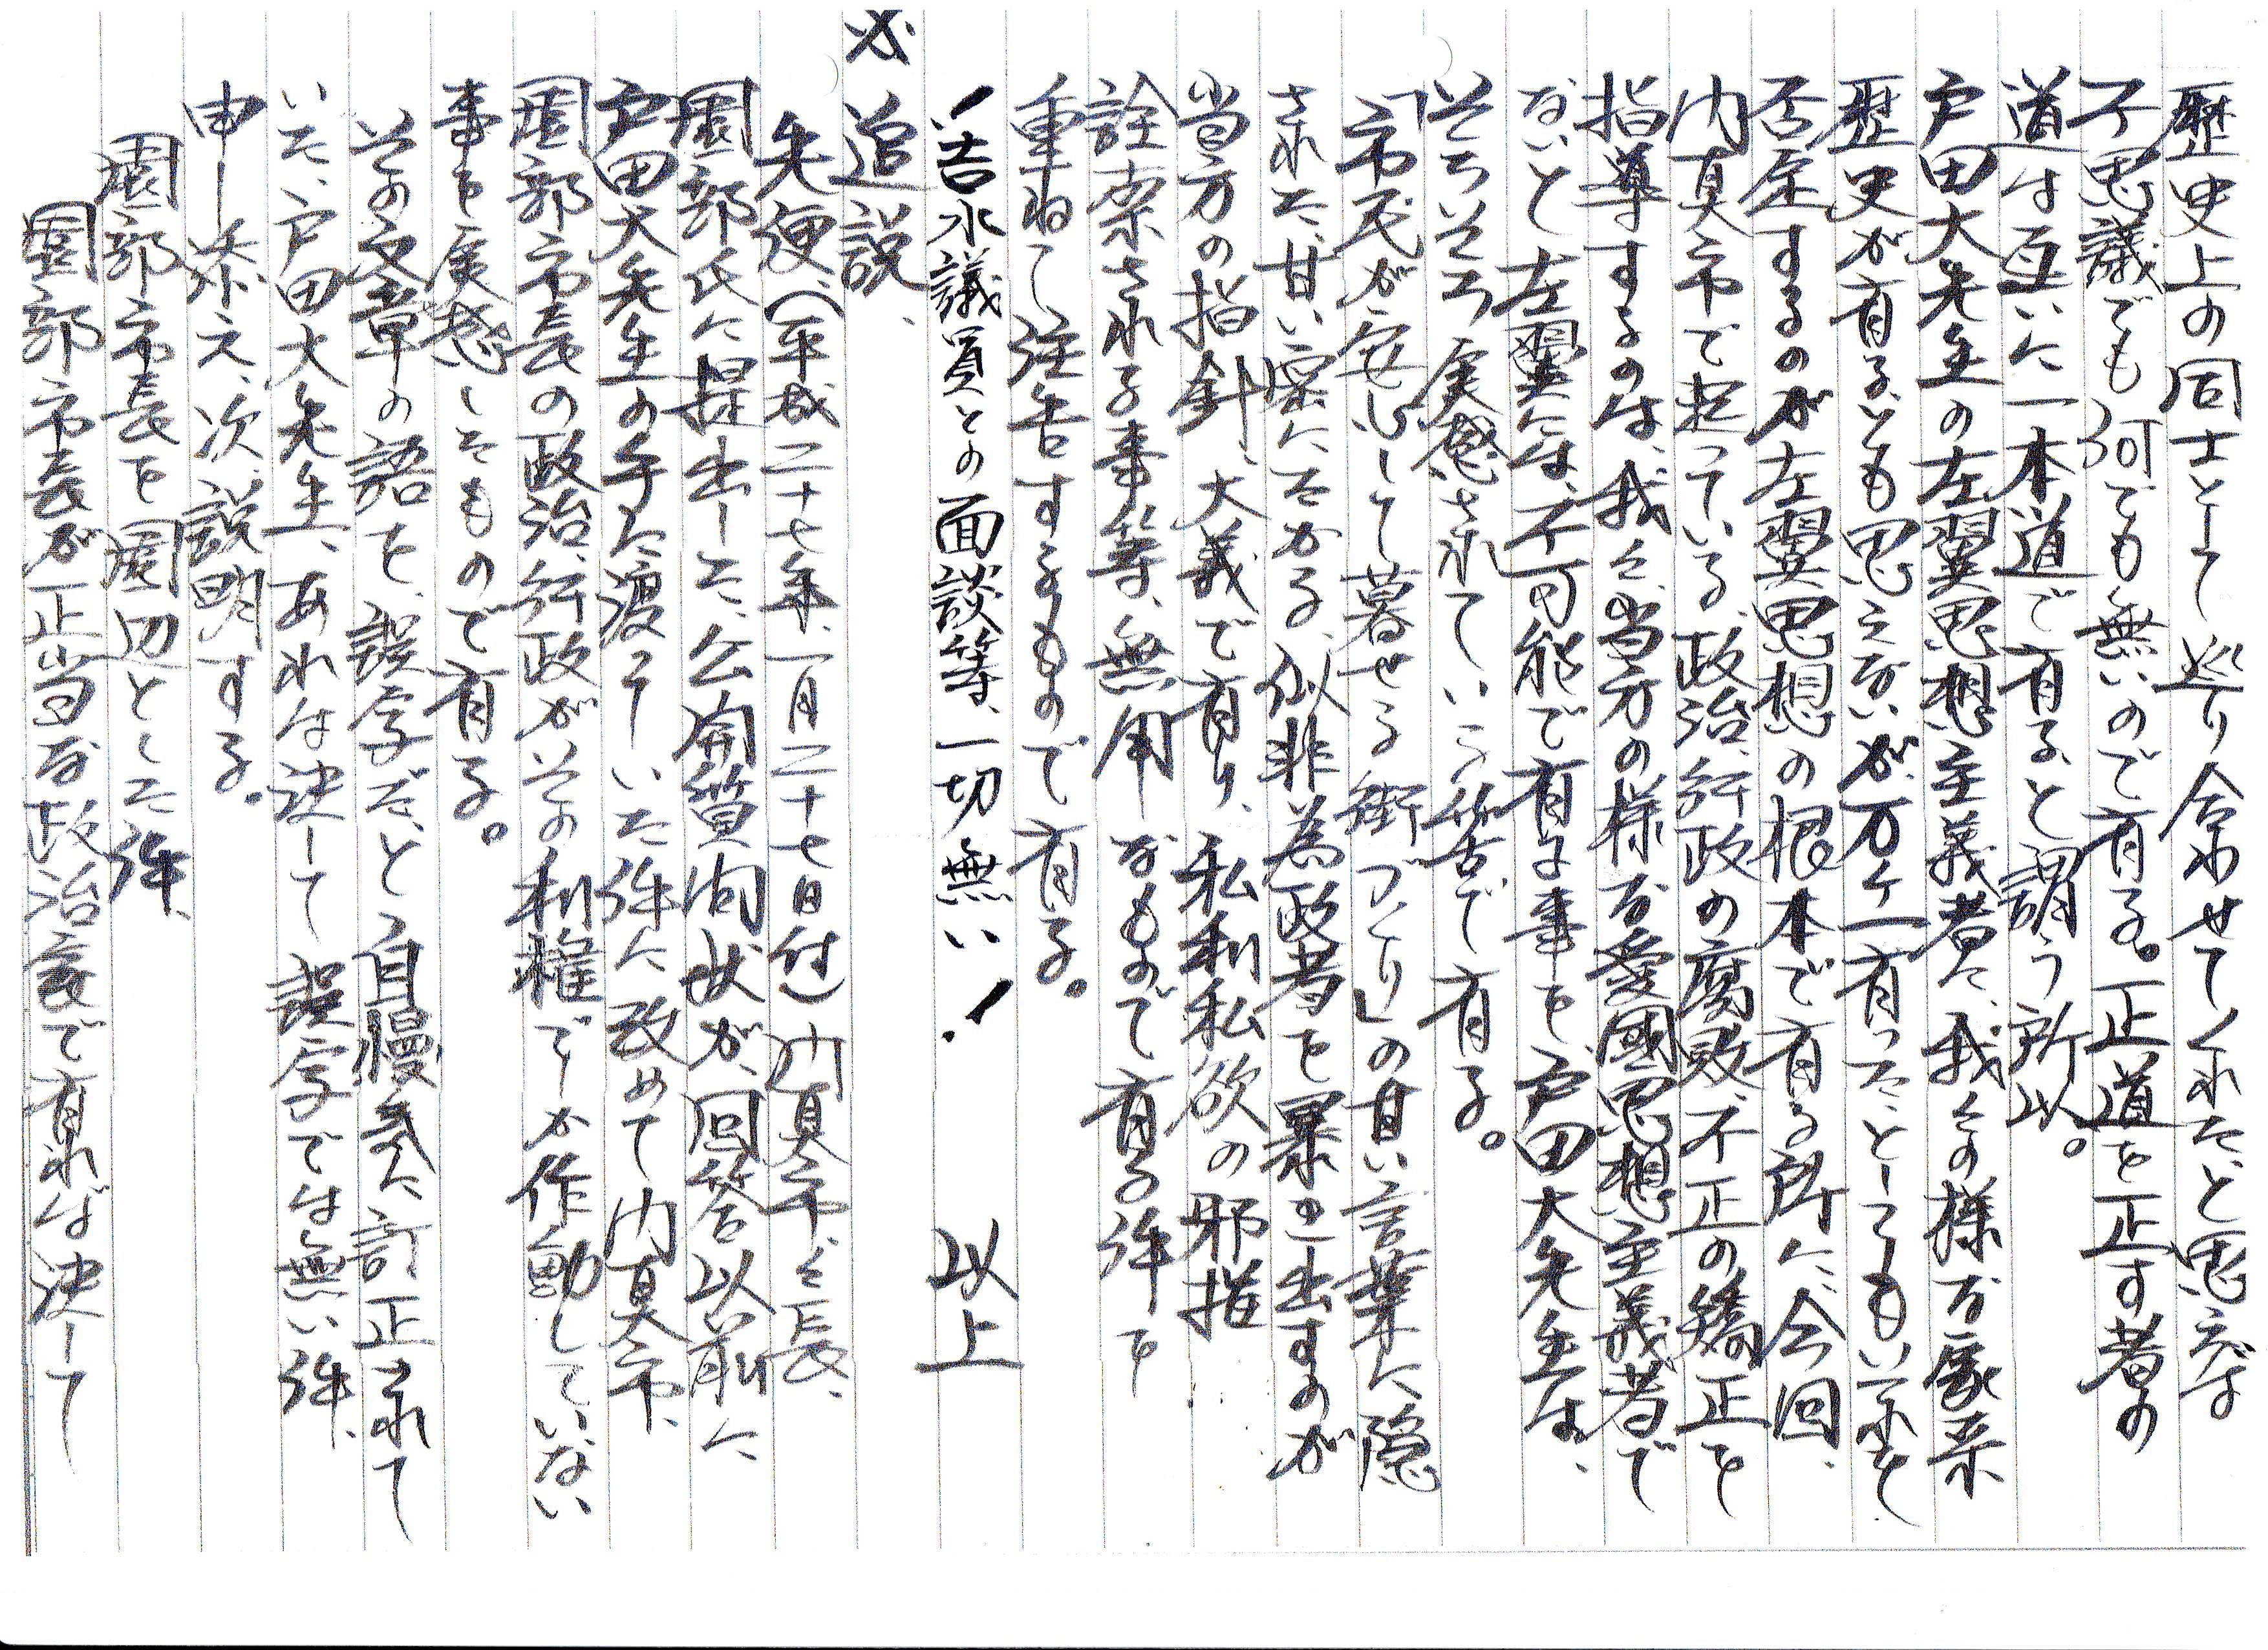 歴史上の同士として巡り合わせてくれたと思えば
不思議でも何でも無いので有る。正道を正す者の
道は互いに一本道で有る、と謂う所以。
戸田大先生の左翼思想主義者に、我々の様な家系
歴史が有る、とも思えないが、万ケ一有ったとしても、
否定するのが左翼思想の根本で有る所に、今回、
内真市で起っている、政治、行政の腐敗、不正の矯正を
指導するのは、我々、当方の様な愛國思想主義者で
ないと左翼には、不可能で有る事を、戸田大先生は、
そろそろ実感されていて苦で有る。
「市民が安心して暮せる街づくり」の甘い言葉に隠
された、甘い蜜にたかる、似非為政者を暴き出すのが
当方の指針、大義で有り、私利私欲の邪推
詮索される事等、無用なもので有る件を
重ねて注告するもので有る。
!吉水議員との面談等、一切無い! 以上
※ 追説、
先便、(平成二十七年、一月二十七日付)内真市々長、
園部氏に提出した、公開質問状が、回答以前に
戸田大先生の手に渡っていた件に改めて内真市、
園部市長の政治、行政がその利権でしか作動していない
事を実感したもので有る。
その文章の語を、誤字だ、と自慢気に訂正されて
いた、戸田大先生、あれは決して誤字では無い件、
申し添え、次、説明する。
園部市長を園辺とした件、
園部市長が正当な政治家で有れば決して